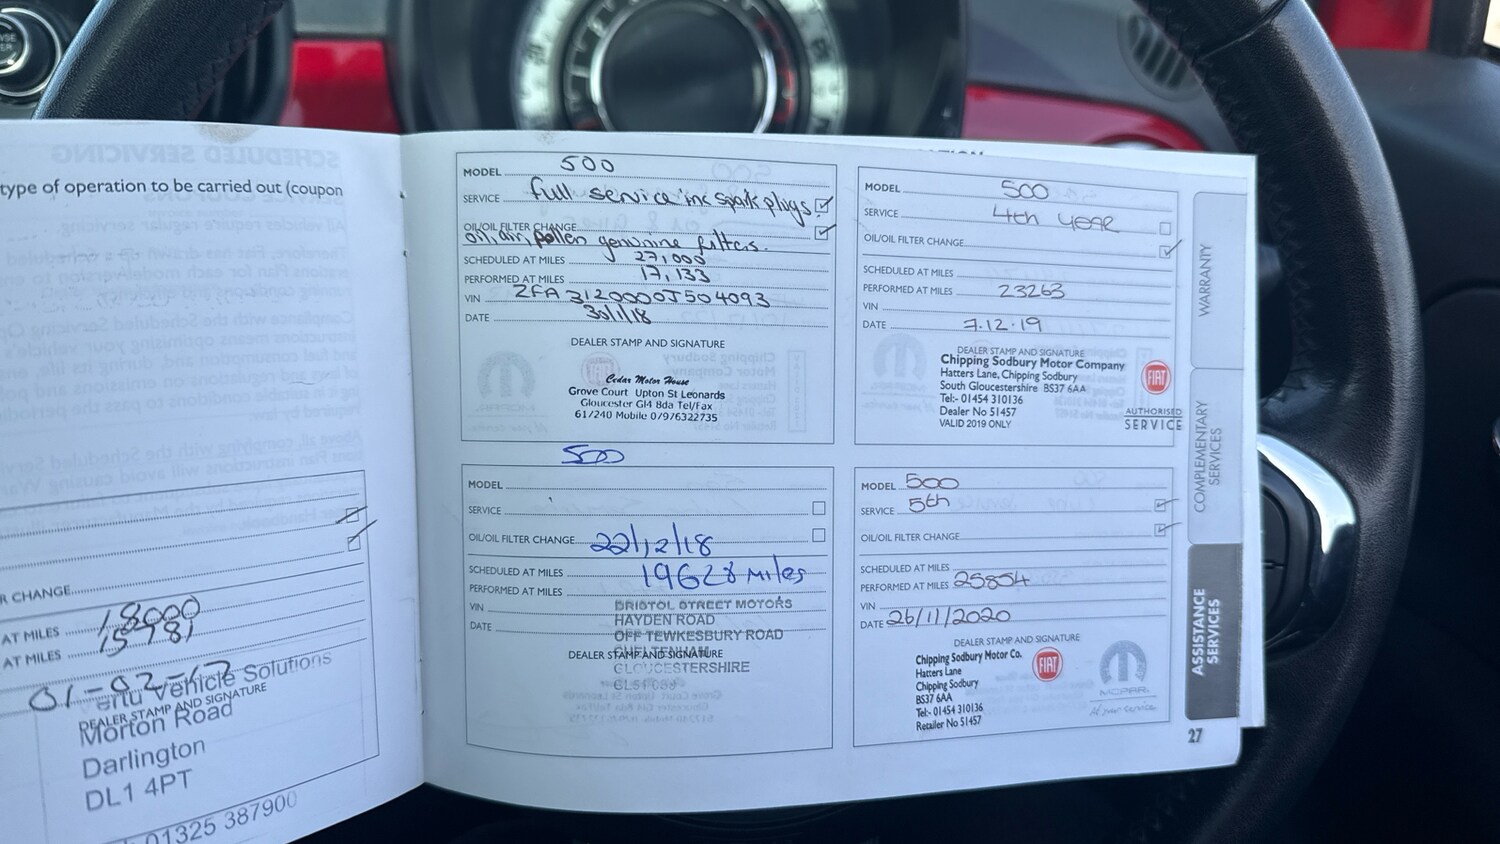 type of operation to be carried out (coupon
R CHANGE
AT MILES 18000
AT MILES 15781
01-02-17
Vertu Vehicle Solutions
DEALER STAMP AND SIGNATURE
Morton Road
Darlington
DL1 4PT
01325 387900
MODEL 500
SERVICE full service inc spark plugs.
OIL/OIL FILTER CHANGE
oil, air, pollen genuine filters.
SCHEDULED AT MILES 27,000
PERFORMED AT MILES 17,133
VIN ZFA3120000J504093
DATE 30/1/18
DEALER STAMP AND SIGNATURE
Cedar Motor House
Grove Court Upton St Leonards
Gloucester Gl4 8da Tel/Fax
61/240 Mobile 07976322735
500
MODEL
SERVICE
OIL/OIL FILTER CHANGE 22/12/18
SCHEDULED AT MILES 19628 Miles
PERFORMED AT MILES
VIN
DATE
BRISTOL STREET MOTORS
HAYDEN ROAD
OFF TEWKESBURY ROAD
CHELTENHAM
DEALER STAMP AND SIGNATURE
GLOUCESTERSHIRE
MODEL 500
SERVICE 4th year
OIL/OIL FILTER CHANGE
SCHEDULED AT MILES
PERFORMED AT MILES 23263
VIN
DATE 7.12.19
DEALER STAMP AND SIGNATURE
Chipping Sodbury Motor Company
Hatters Lane, Chipping Sodbury
South Gloucestershire BS37 6AA
Tel:- 01454 310136
Dealer No 51457
VALID 2019 ONLY
FIAT
AUTHORISED
SERVICE
MODEL 500
SERVICE 5th
OIL/OIL FILTER CHANGE
SCHEDULED AT MILES
PERFORMED AT MILES 25854
VIN
DATE 26/11/2020
DEALER STAMP AND SIGNATURE
Chipping Sodbury Motor Co.
Hatters Lane
Chipping Sodbury
BS37 6AA
Tel:- 01454 310136
Retailer No 51457
FIAT
MOPAR
At your service
WARRANTY
COMPLEMENTARY
SERVICES
ASSISTANCE
SERVICES
27